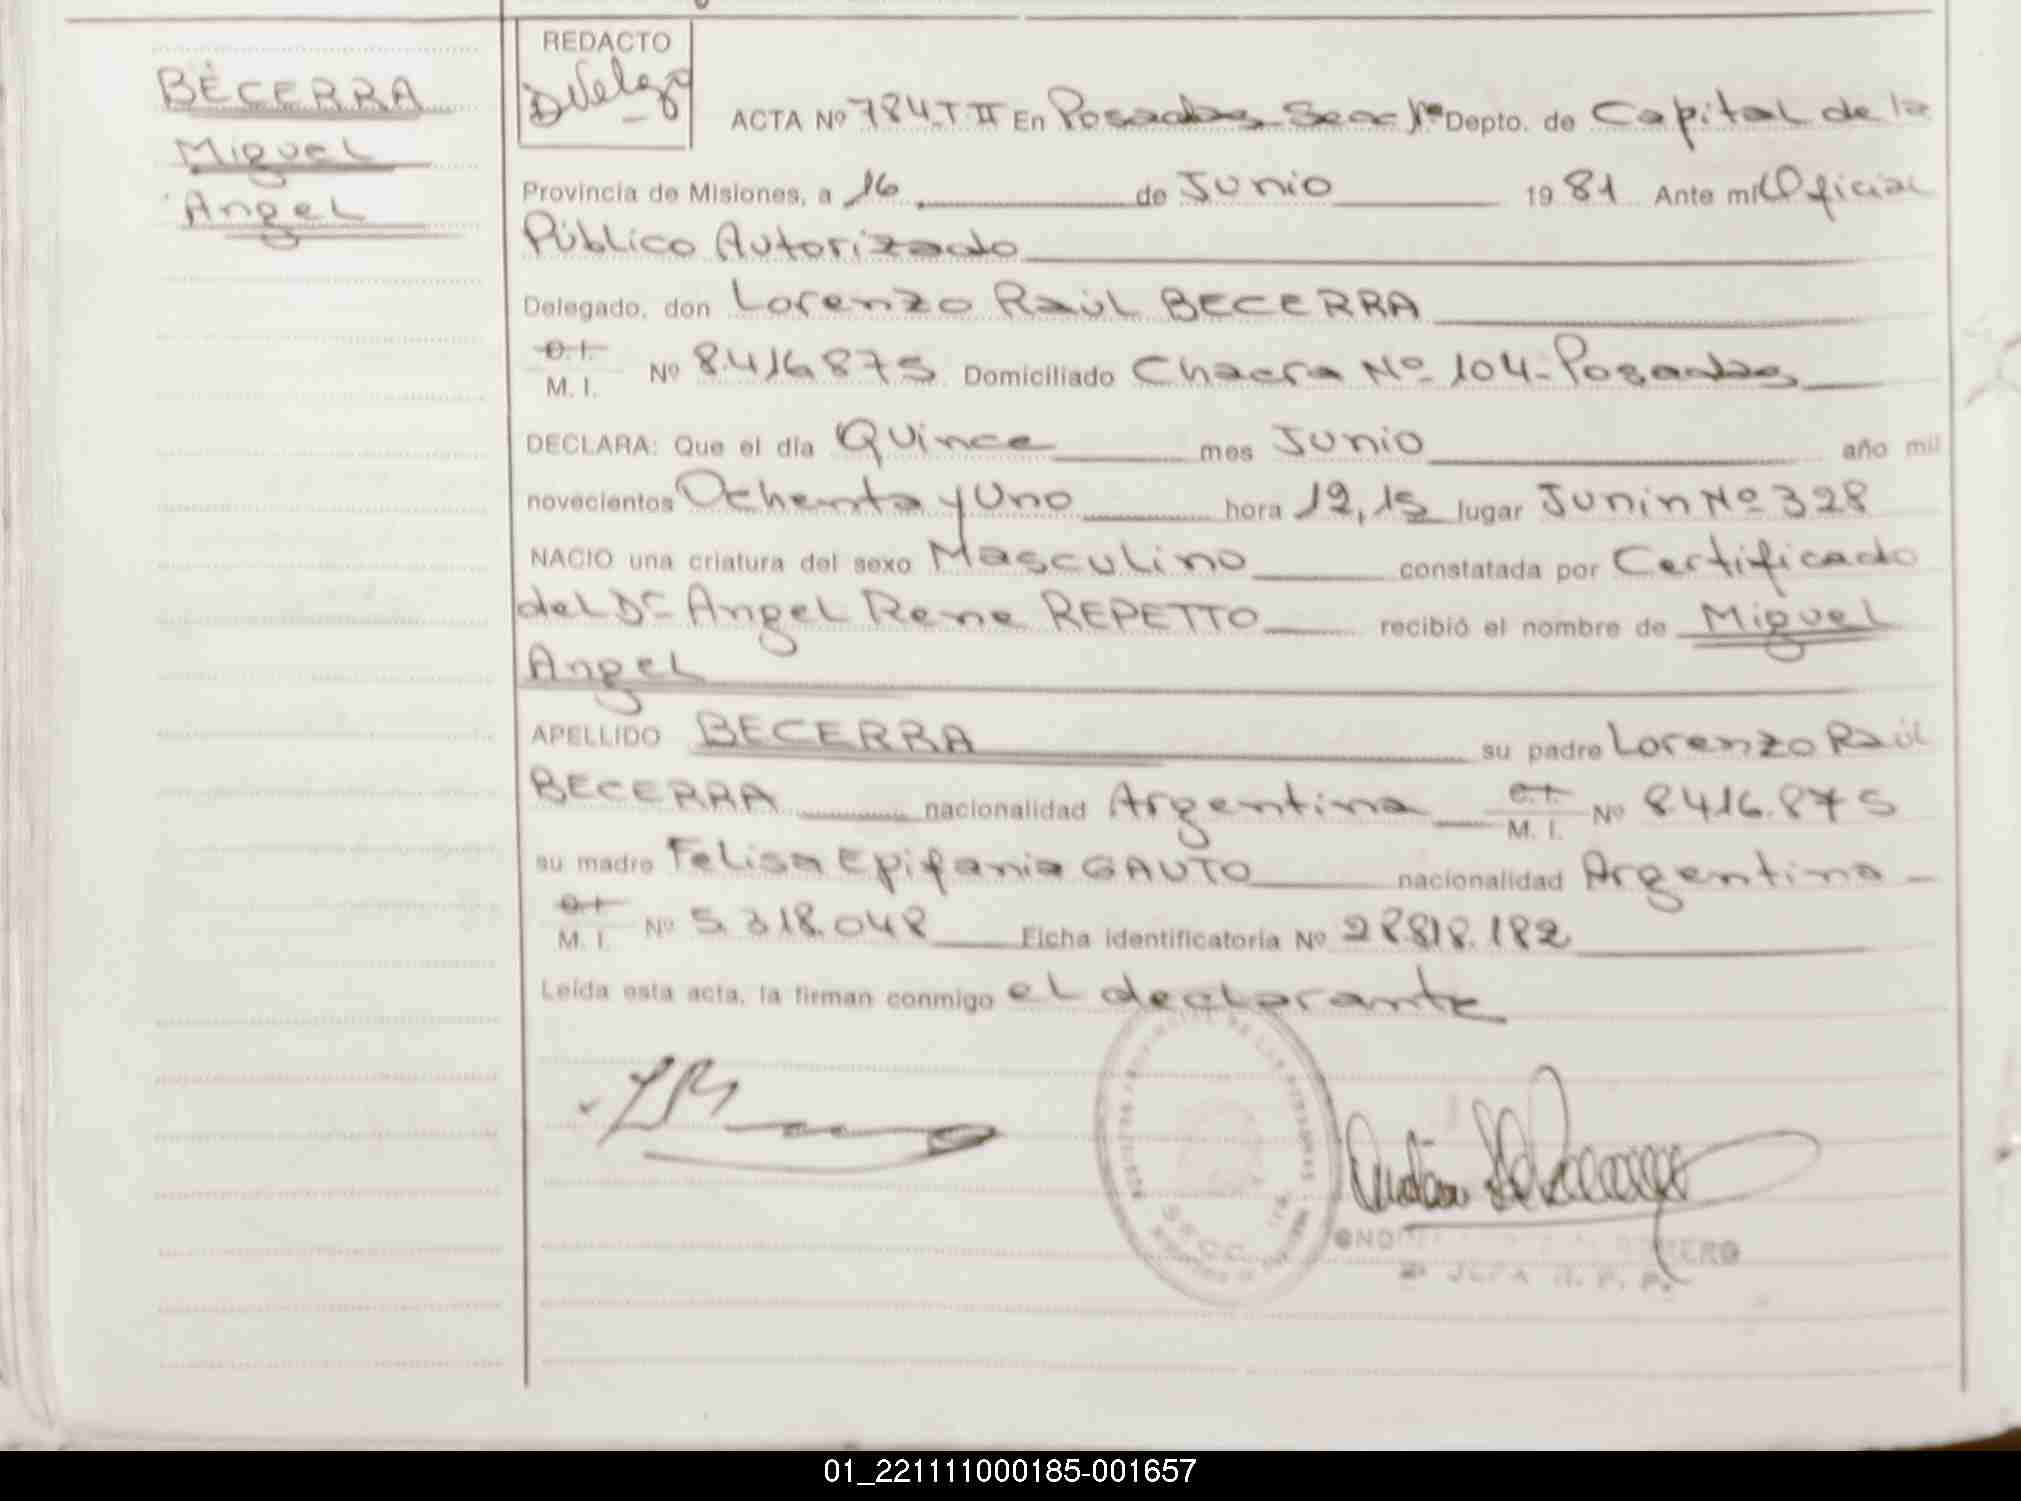 BECERRA
Miguel
Angel
REDACTO
ACTA Nº 784 T II En Posadas Secc 1ª Depto. de Capital de la
Provincia de Misiones, a 16 de Junio 1981 Ante mi Oficial
Público Autorizado
Delegado, don Lorenzo Raúl BECERRA
C.I.
M. I. Nº 8.416.875 Domiciliado Chacra Nº 104-Posadas
DECLARA: Que el día Quince mes Junio año mil
novecientos Ochenta y Uno hora 12,15 lugar Junin Nº 328
NACIO una criatura del sexo Masculino constatada por Certificado
del Dr Angel Rene REPETTO recibió el nombre de Miguel
Angel
APELLIDO BECERRA su padre Lorenzo Raúl
BECERRA nacionalidad Argentina C.I.
M. I. Nº 8416.875
su madre Felisa Epifania GAUTO nacionalidad Argentina
C.I.
M. I. Nº 5.318.048 Ficha identificatoria Nº 28.818.182
Leída esta acta, la firman conmigo el declarante
01_221111000185-001657